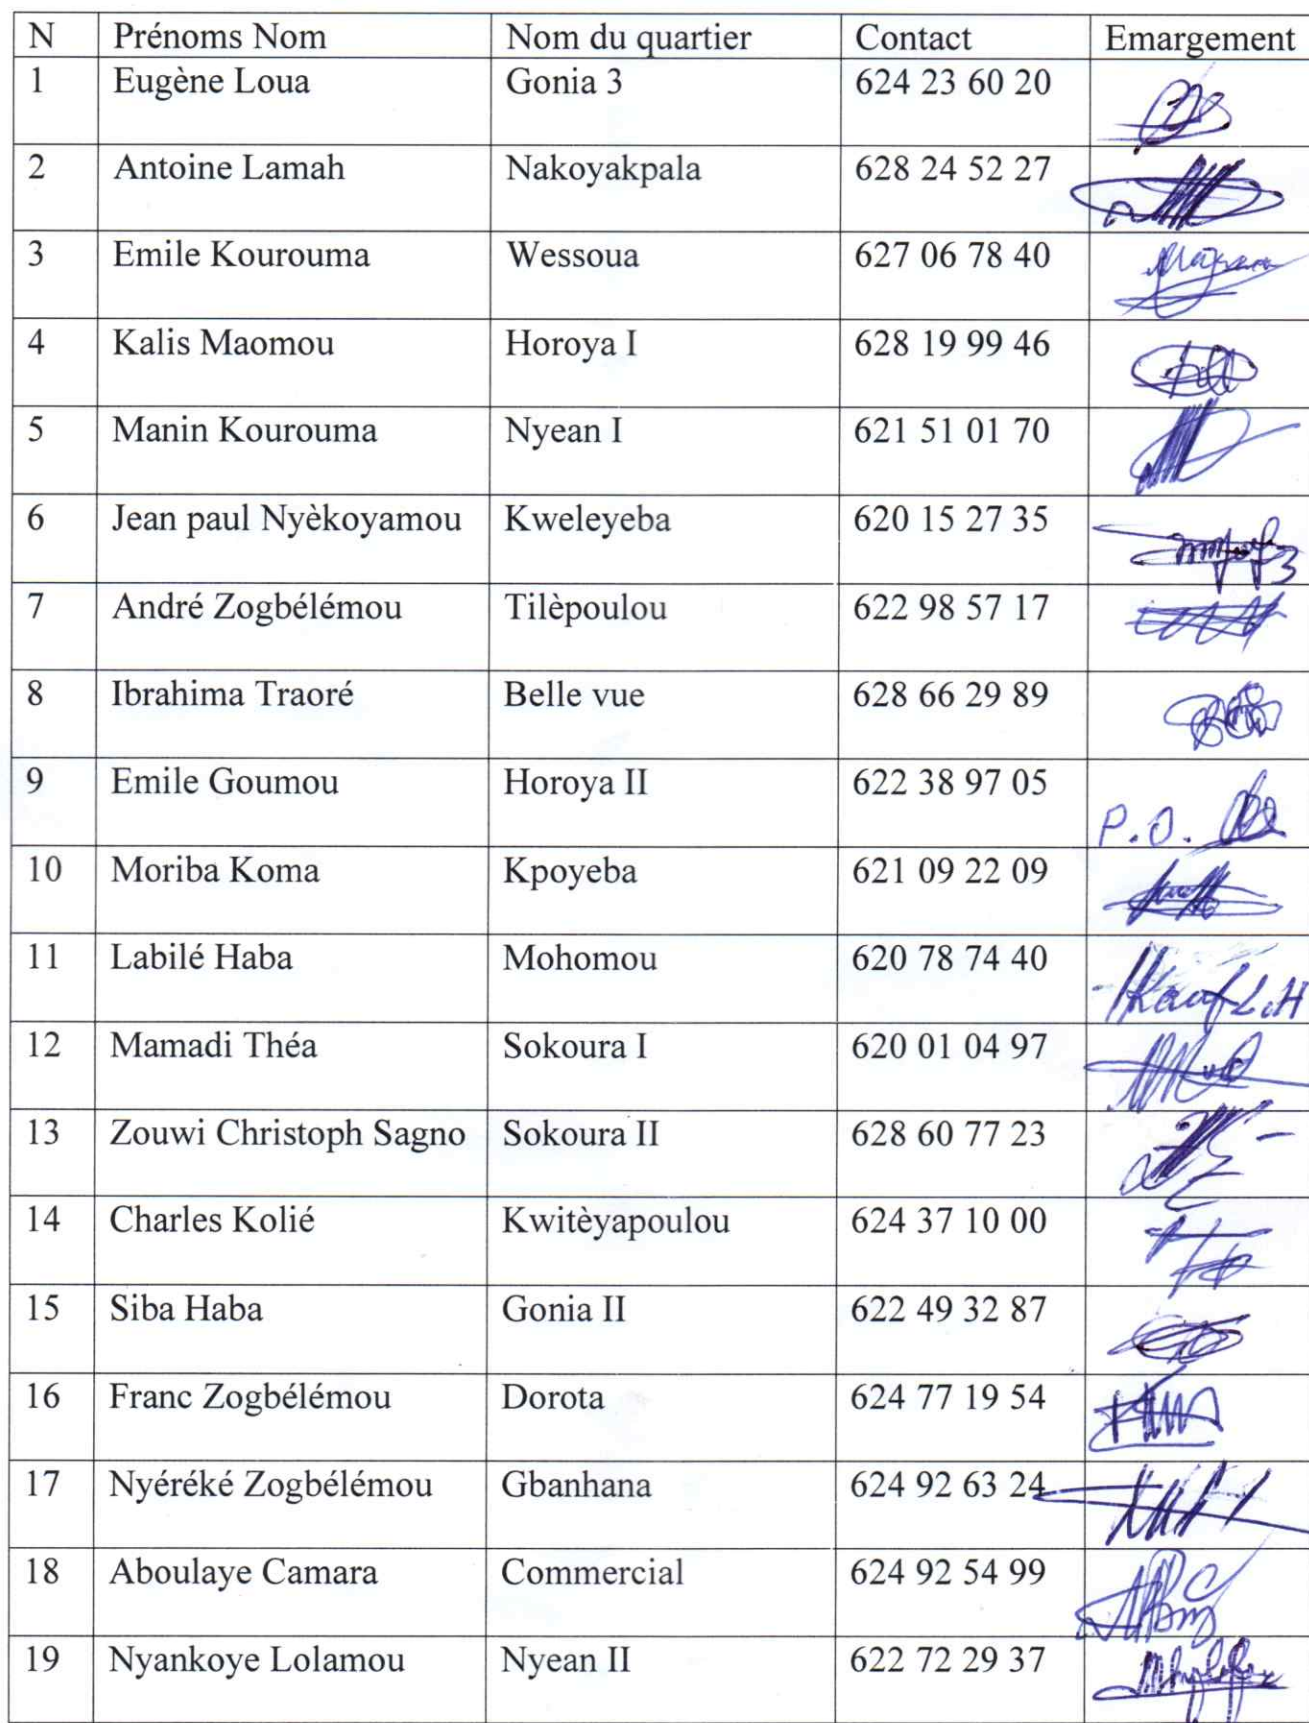 N Prénoms Nom Nom du quartier Contact Emargement
1 Eugène Loua Gonia 3 624 23 60 20
2 Antoine Lamah Nakoyakpala 628 24 52 27
3 Emile Kourouma Wessoua 627 06 78 40
4 Kalis Maomou Horoya I 628 19 99 46
5 Manin Kourouma Nyean I 621 51 01 70
6 Jean paul Nyèkoyamou Kweleyeba 620 15 27 35
7 André Zogbélémou Tilèpoulou 622 98 57 17
8 Ibrahima Traoré Belle vue 628 66 29 89
9 Emile Goumou Horoya II 622 38 97 05 P.O.
10 Moriba Koma Kpoyeba 621 09 22 09
11 Labilé Haba Mohomou 620 78 74 40
12 Mamadi Théa Sokoura I 620 01 04 97
13 Zouwi Christoph Sagno Sokoura II 628 60 77 23
14 Charles Kolié Kwitèyapoulou 624 37 10 00
15 Siba Haba Gonia II 622 49 32 87
16 Franc Zogbélémou Dorota 624 77 19 54
17 Nyéréké Zogbélémou Gbanhana 624 92 63 24
18 Aboulaye Camara Commercial 624 92 54 99
19 Nyankoye Lolamou Nyean II 622 72 29 37